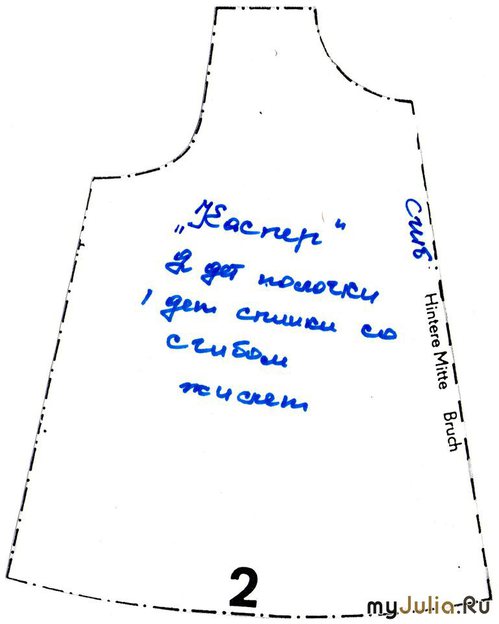 „Каспер"
2 дет полочки
1 дет спинки со
сгибом
жилет
сгиб
Hintere Mitte Bruch
2
myJulia.Ru